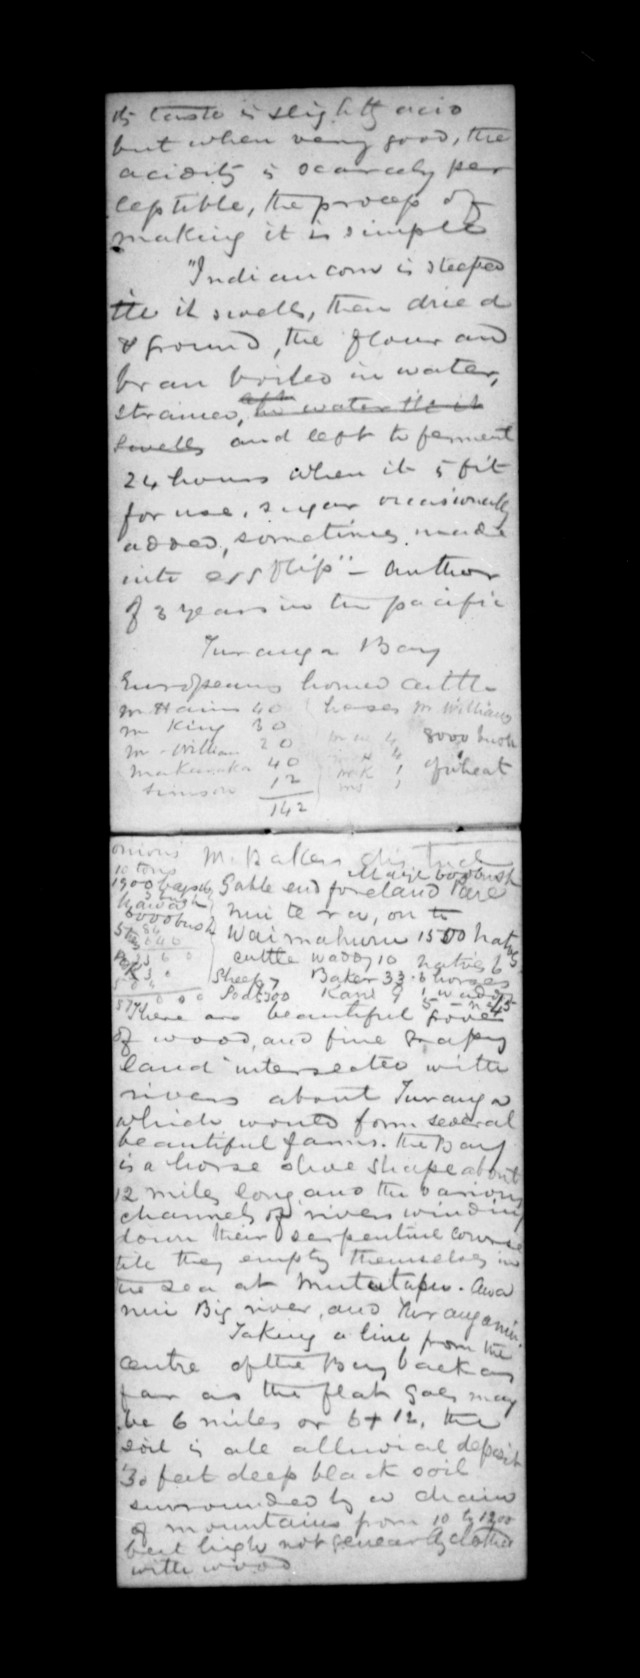 its taste is slightly acid
but when very good, the
acidity is scarcely per
ceptible, the process of
making it is simple
"Indian corn is steeped
till it swells, then dried
& ground, the flour and
bran boiled in water,
strained, after in water till it
swells and left to ferment
24 hours when it is fit
for use, sugar occasionally
added, sometimes made
into egg flip" - author
of 3 years in the pacific
Turanga Bay
Europeans horned cattle
Mr Harris 40 horses Mr Williams
Mr King 30
Mr William 20 4 8000 bush
40 4 of wheat
Simson 12 1
142
onions Mr Bakers district
10 tons Maize 6000 bush
1900 Gable end foreland
nui te ra, on to
6000 bush Waimahuru 1500 natves
cattle waddy 10 natves 6
Sheep 7 Baker 33 6 horses
There are beautiful
of wood, and fine grassy
land intersected with
rivers about Turanga
which would form several
beautiful farms. the Bay
is a horse shoe shape about
12 miles long, and the various
channels of rivers winding
down their serpentine course
till they empty themselves in
the sea at Mututapu. Awa
nui Big river, and Turanganui
Taking a line from the
centre of the Bay back as
far as the flat goes may
be 6 miles or 6 + 12, the
soil is all alluvial deposit
30 feet deep black soil
surrounded by a chain
of mountains from 10 to 1200
feet high not generally clothed
with wood